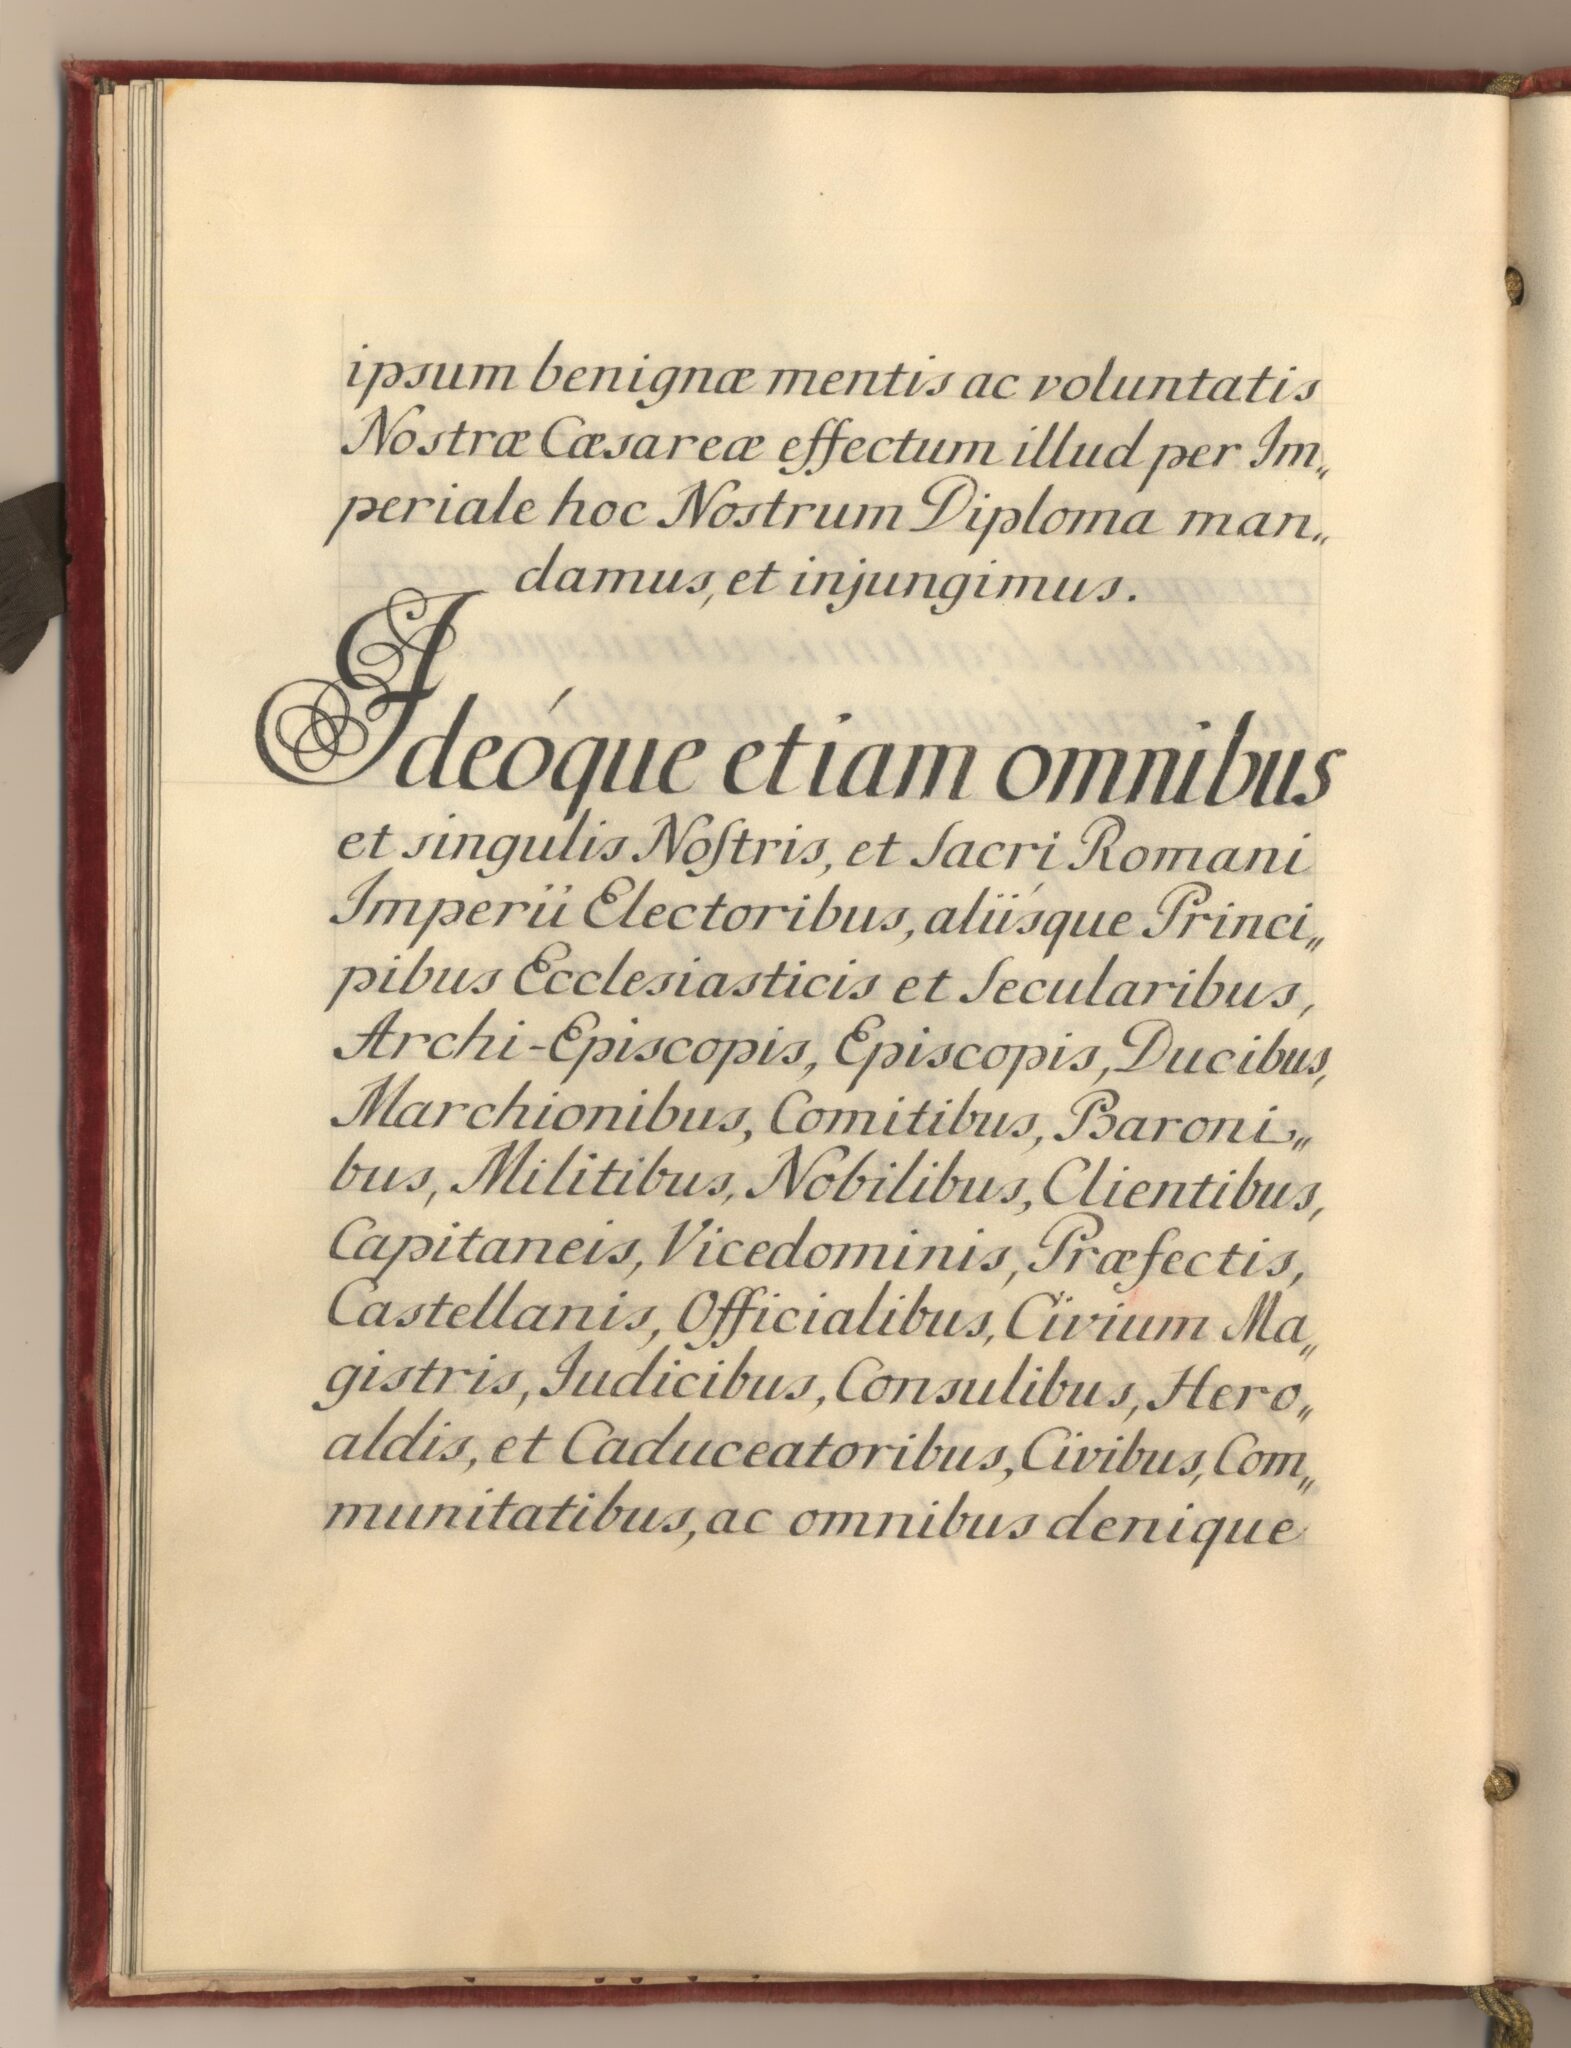 ipsum benignæ mentis ac voluntatis
Nostræ Cæsareæ effectum illud per Im„
periale hoc Nostrum Diploma man„
damus, et injungimus.
Ideóque etiam omnibus
et singulis Noſtris, et Sacri Romani
Imperii Electoribus, aliísque Princi„
pibus Ecclesiasticis et Secularibus,
Archi-Episcopis, Episcopis, Ducibus,
Marchionibus, Comitibus, Baroni„
bus, Militibus, Nobilibus, Clientibus,
Capitaneis, Vicedominis, Præfectis,
Castellanis, Officialibus, Civium Ma„
gistris, Iudicibus, Consulibus, Hero„
aldis, et Caduceatoribus, Civibus, Com„
munitatibus, ac omnibus denique